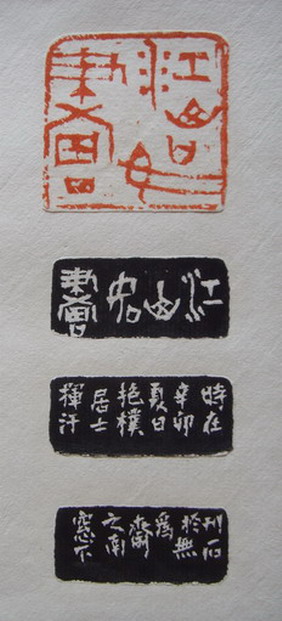 江山
如畫
江山如畫
時在
辛卯
夏日
艳樸
居士
揮汗
刊石
於無
為
齋
之南
窓下